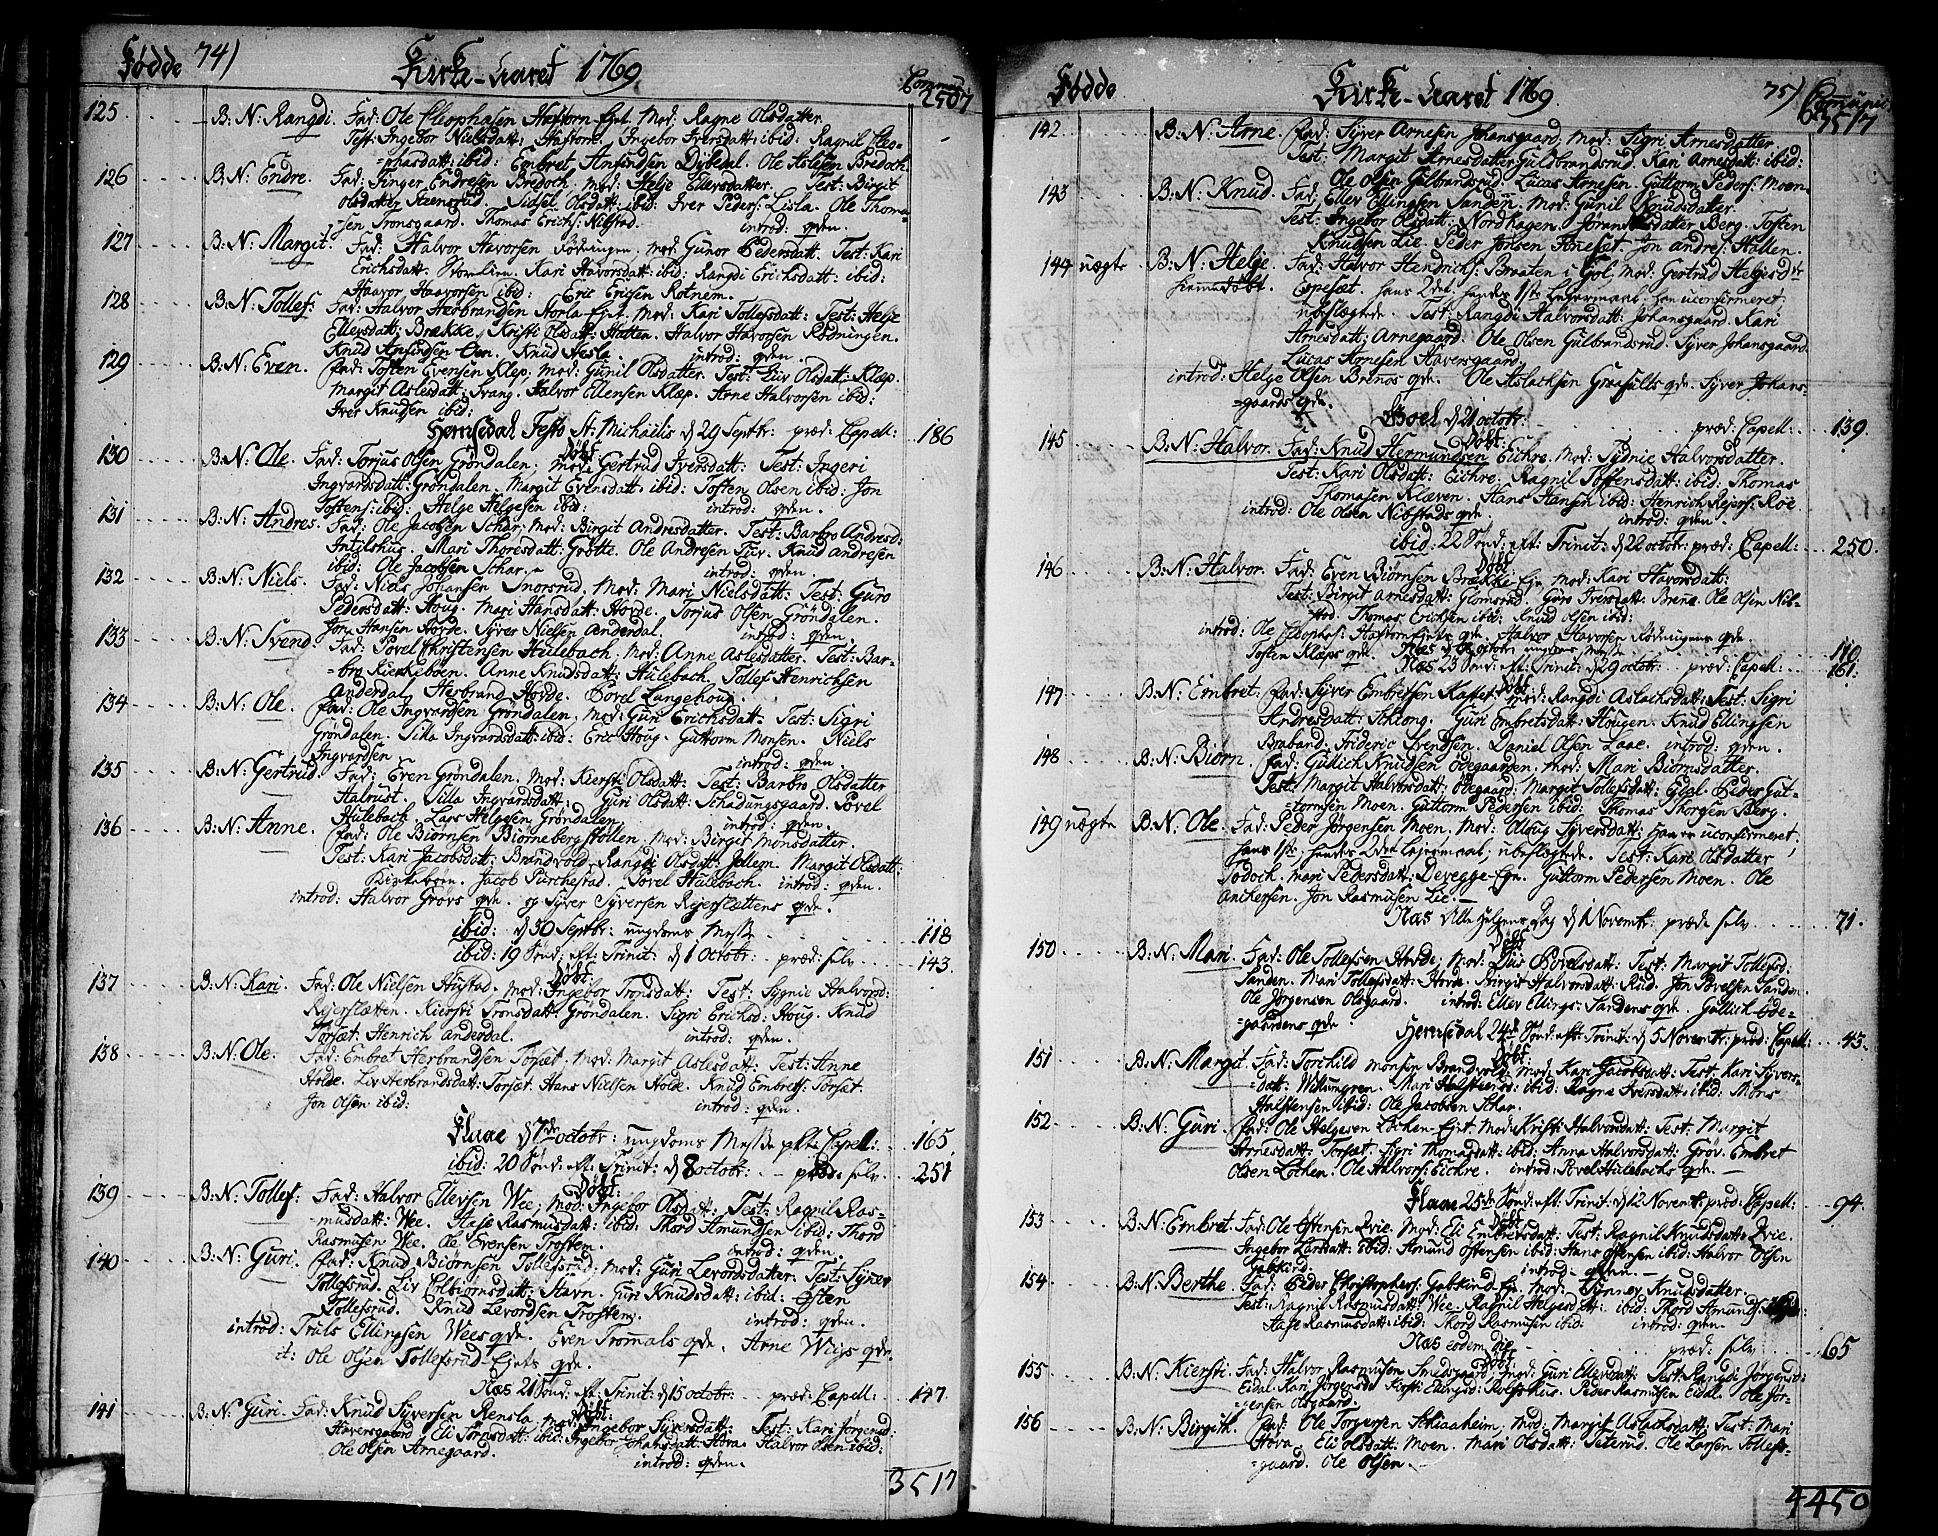 Fødde 74) Kirke-Aaret 1769. Commun: 2507
125 B: N: Rangdi. Fad: Ole Cleophasen Haftorn Ejet Mod: Ragne Olsdatter.
Test: Ingebor Nielsdatt: Haftorn. Ingebor Iversdatt: ibid: Ragnil Cleo-
=phasdatt: ibid: Embret Amundsen Dybedal. Ole Aslesen Bredoch.
126 B: N: Endre. Fad: Finger Endresen Bredoch, Mod: Helje Ellersdatter. Test: Birgit
Olsdatter Steensrud. Sidsel Olsdatt: ibid: Iver Peders: Lisla. Ole Thoma-
=sen Tronsgaard. Thomas Erichs: Nibstad. introd: qvden.
127 B: N: Margit: Fad: Halvor Havorsen Rødningen, Mod: Gunor Pedersdatt: Test: Kari
Erichsdatt. Kari Havorsdatt: ibid: Rangdi Erichsdatt: ibid:
Haavor Haavorsen ibid: Eric Ericsen Rotnem.
128 B: N: Tollef: Fad: Halvor Herbrandsen Norla Ejet. Mod: Kari Tollefsdatt: Test: Helje
Ellersdatt: Brække, Kristi Olsdatt: Halten. Halvor Havorsen Rødningen.
Knud Amundsen Øen. Knud Nesla. introd: qvden.
129 B: N: Even. Fad: Tosten Evensen Klep, Mod: Gunil Olsdatter. Test: Liv Olsdatt: Klæp.
Margit Aslesdatt: Svang. Halvor Ellensen Klæp. Arne Halvorsen ibid:
Iver Knudsen ibid:
Hemsedal Festo St: Michaelis d 29 Septbr: præd: Capell: 186
Døbt:
130 B: N: Ole. Fad: Torjus Olsen Grøndalen, Mod: Gertrud Iversdatt: Test: Ingeri
Ingvardsdatt: Grøndalen. Margit Evensdatt: ibid: Tosten Olsen ibid: Jon
Tostens: ibid: Helge Helgesen ibid: introd: qvden.
131 B: N: Andres. Fad: Ole Jacobsen Schar, Mod: Birgit Andresdatter. Test: Barbro Andresd:
Intilshus. Mari Thoresdatt: Grøtte. Ole Andresen Tuv. Knud Andresen
ibid: Ole Jacobsen Schar. introd: qvden.
132 B: N: Niels. Fad: Niels Johansen Snorsrud. Mod: Mari Nielsdatt: Test: Guro
Pedersdatt: Houg. Mari Hansdatt: Hovde. Torjus Olsen Grøndalen.
Jon Hansen Hovde. Syver Nielsen Anderdal. introd: qvden.
133 B: N: Svend. Fad: Povel Christensen Hulebach, Mod: Anne Aslesdatter. Test: Bar-
=bro Kirkebøen. Anne Knudsdatt: Hulebach. Tollef Henrichsen
Anderdal. Herbrand Hovde. Povel Langehoug.
134 B: N: Ole. Fad: Ole Ingvardsen Grøndalen, Mod: Guri Erichsdatt: Test: Sigri
Grøndalen. Silla Ingvardsdatt: ibid: Eric Houg. Guttorm Monsen. Niels
Ingvardsen introd: qvden.
135 B: N: Gertrud. Fad: Even Grøndalen, Mod: Kiersti Olsdatt: Test: Barbro Olsdatter
Halrust. Silla Ingvardsdatt: Guri Olsdatt: Schadungsgaard. Povel
Hulebach. Lars Helgesen Grøndalen. introd: qvden.
136 B: N: Anne. Fad: Ole Biørnsen Biørnebergstølen, Mod: Birgit Monsdatter.
Test: Kari Jacobsdatt: Brandvold. Rangdi Olsdatt: Jellem. Margit Olsdatt:
Birkebøen. Jacob Purchestad. Povel Hulebach. introd: qvden.
introd: Halvor Grøvs qvde. og Syver Syversen Rejerslættens qvde.
ibid: d 30 Septbr: ungdoms Messe 118
ibid: 19 Sønd: eft: Trinit: d 1 Octobr: præd: selv 143.
Døbt:
137 B: N: Kari. Fad: Ole Nielsen Hustad, Mod: Ingebor Tronsdatt: Test: Sygnie Halvorsd:
Rejerslætten. Kiersti Tronsdatt: Grøndalen. Sigri Erichsd: Houg. Knud
Torsæt. Henrich Anderdal. introd: qvden.
138 B: N: Ole. Fad: Embret Herbrandsen Torsæt. Mod: Margit Aslesdatt: Test: Anne
Holde. Liv Herbrandsdatt: Torsæt. Hans Nielsen Holde. Knud Embrets: Torsæt.
Jon Olsen ibid: introd: qvden.
Flaae d 7de Octobr: ungdoms Messe Capell: 165.
ibid: 20 Sønd: eft: Trinit: d 8 Octobr: præd: selv 251
Døbt:
139 B: N: Tollef: Fad: Halvor Ellevsen Wee, Mod: Ingebor Olsdatt: Test: Ragnil Ras-
=musdatt: Wee. Aase Rasmusdatt: ibid: Thord Amundsen ibid: Thord
Rasmusen Wee. Ole Evensen Trostem. introd: qvden.
140 B: N: Guri. Fad: Knud Biørnsen Tollefsrud, Mod: Guri Levordsdatter. Test: Syver
Tollefsrud. Liv Colbiørnsdatt: Stavn. Guri Knudsdatt: ibid: Østen
Tollefsrud. Knud Levordsen Trostem. introd: qvden.
introd: Truls Ellingsen Wees qvde. Even Trommals qvde. Arne Wigs qvde.
it: Ole Olsen Tollefsrud-Ejets qvde.
Næs 21 Sønd: eft: Trinit: d 15 octobr: præd: Capell: 147.
Døbt:
141 B: N: Guri. Fad: Knud Syversen Rensla, Mod: Ingebor Syversdatt: Test: Kari Jørgensd:
Haversgaard. Eli Tomsdatt: ibid: Ingebor Johansdatt: Hova. Halvor Olsen ibid:
Ole Olsen Arnegaard. introd: qvden.
3517
Fødde Kirke-Aaret 1769. 75) Communic: 3517
142 B: N: Arne. Fad: Syver Arnesen Johansgaard, Mod: Sigri Arnesdatter.
Test: Margit Arnesdatter Guldbrandsrud. Kari Arnesdatt: ibid:
Ole Olsen Gulbrandsrud. Lucas Arnesen. Guttorm Peders: Moen.
143 B: N: Knud. Fad: Ellev Ellingsen Sanden. Mod: Gunil Knudsdatter.
Test: Ingebor Olsdatt: Nordhagen. Jøran Olsdatter Berg. Tosten
Knudsen Lie. Peder Jonsen Hneset. Jon Andres: Hallen.
144 uægte B: N: Helge. Fad: Halvor Hendrichs: Braaten i Gol, Mod: Gertrud Helgesdtr
hiemmedøbt. Espesæt. hans 2det, hendes 1ste Lejermaal. hun uconfirmeret:
ubeslægtede. Test: Rangdi Halvorsdatt: Johansgaard. Kari
Arnesdatt: Arnegaard. Ole Olsen Gulbrandsrud. Syver Johansgaard.
Lucas Arnesen Haversgaard.
introd: Helge Olsen Brenos qvde. Ole Aslachsen Graasults qvde. Syver Johans-
=gaards qvde.
Goel d 21 octobr: præd: Capell: 139.
Døbt:
145 B: N: Halvor. Fad: Knud Hermundsen Eichre. Mod: Sidnie Halvorsdatter.
Test: Kari Olsdatt: Eichre. Ragnil Tostensdatt: ibid: Thomas
Thomasen Klæven. Hans Hansen ibid: Henrich Rejers: Roe.
introd: Ole Olsen Nibstads qvde. introd: qvden.
ibid: 22 Sønd: eft: Trinit: d 22 octobr: præd: Capell: 250.
Døbt:
146 B: N: Halvor. Fad: Even Biørnsen Brække-Eje, Mod: Kari Havorsdatt:
Test: Birgit Arnesdatt: Glomsrud. Guro Iversdatt: Brenæ. Ole Olsen Nib-
=stad. Thomas Erichsen ibid: Knud Olsen ibid:
introd: Ole Cleophas: Haftorn Ejets qvde. Halvor Havorsen Rødningens qvde.
Tosten Klæps qvde. Næs d 28 Octobr: ungdoms Messe 110
Næs 23 Sønd: eft: Trinit: d 29 octobr: præd: Capell: 161.
Døbt:
147 B: N: Embret. Fad: Syver Embretsen Kasset, Mod: Rangdi Aslachsdatt: Test: Sigri
Andresdatt: Schiong. Guri Embretsdatt: Hougen. Knud Ellingsen
Braband. Frideric Svendsen. Daniel Olsen Laae. introd: qvden.
148 B: N: Biørn. Fad: Gudich Knudsen Ødegaarden. Mod: Mari Biørnsdatter.
Test: Margit Halvorsdatt: Ødegaard. Margit Tollefsdatt: Eidal. Peder Gut-
=tormsen Moen. Guttorm Pedersen ibid: Thomas Thorgsen Berg.
149 uægte B: N: Ole. Fad: Peder Jørgensen Moen. Mod: Oloug Syversdatt: Han uconfirmeret;
Hans 1ste, hendes 2den Lejermaal, ubeslægtede. Test: Kari Olsdatter
Todoch, Mari Pedersdatt: Devegge-Eje. Guttorm Pedersen Moen. Ole
Anchersen. Jon Rasmusen Lie.
Næs Alle Helgens Dag d 1 Novembr: præd: selv 71.
Døbt
150 B: N: Mari. Fad: Ole Tollefsen Hovde, Mod: Liv Povelsdatt: Test: Margit Tollefsd:
Sanden. Mari Tollefsdatt: Hovde. Birgit Halvorsdatt: Rud. Jon Povelsen Sanden.
Ole Jørgensen Olsgaard. introd: Ellev Ellings: Sandens qvde. Gullich Øde-
=gaardens qvde.
Hemsedal 24de Sønd: eft: Trinit: d 5 Novembr: præd: Capell: 43.
Døbt:
151 B: N: Margit. Fad: Torchild Monsen Brandvold, Mod: Kari Jacobsdatt: Test: Kari Syvers-
=datt: Wikungren. Mari Halstensd: ibid: Ragne Iversdatt: ibid: Mons
Halstensen ibid: Ole Jacobsen Schar.
152 B: N: Guri. Fad: Ole Helgesen Løchen-Ejet. Mod: Kristi Halvorsdatt: Test: Margit
Arnesdatt: Torsæt. Sigri Thomasdatt: ibid: Anna Halvorsdatt: Grøv. Embret
Olsen Løchen. Ole Halvors: Eichre. introd: Povel Hulebachs qvde.
Flaae 25de Sønd: eft: Trinit: d 12 Novembr: præd: Capell: 94.
Døbt:
153 B: N: Embret. Fad: Ole Østensen Qvie. Mod: Eli Embretsdatt: Test: Ragnil Knudsdatt: Qvie.
Ingebor Larsdatt: ibid: Amund Østensen ibid: Hans Østensen ibid: Halvor Olsen
Gabkind. introd: qvden.
154 B: N: Berthe. Fad: Peder Christophers: Gabkind Eje, Mod: Synnev Knudsdatter.
Test: Ragnil Rasmusdatt: Wee. Ragnil Helgesdatt: ibid: Thord Amunds:
Aase Rasmusdatt: ibid: Thord Rasmusen ibid: introd: qvden.
Næs eodem die præd: selv 65
Døbt:
155 B: N: Kiersti. Fad: Halvor Rasmusen Smedsgaard, Mod: Guri Ellevsdatt: Test: Rangdi Jørgensd:
Eidal. Kari Jørgensd: Kirsti Ellingsd: Rolfshus. Peder Rasmusen Eidal. Ole Jør-
=gensen Olsgaard.
156 B: N: Birgith. Fad: Ole Torgersen Schiaaheim, Mod: Margit Aslachsdatt: Test: Mari
Hova. Eli Olsdatt: Moen. Mari Olsdatt: Seterud. Ole Larsen Tollefs-
=gaard. Ole Olsen.
4450